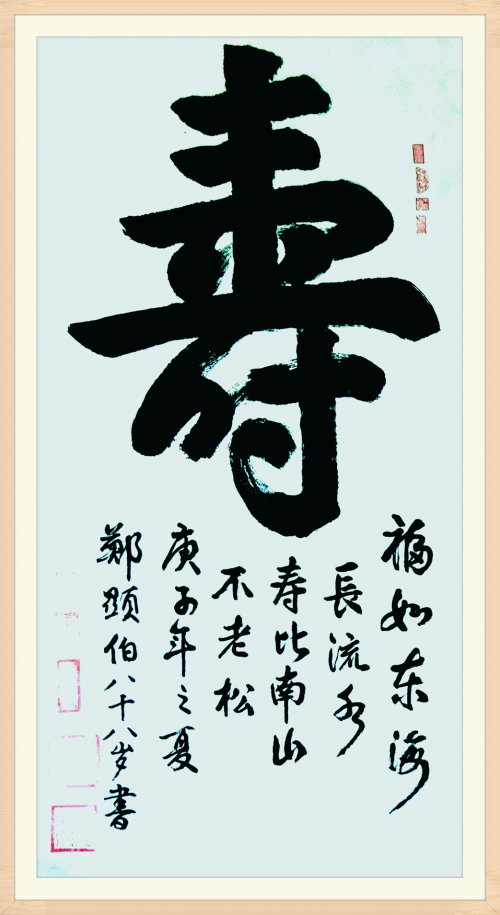 壽
福如东海
長流水
寿比南山
不老松
庚子年之夏
鄭顕伯八十八岁書